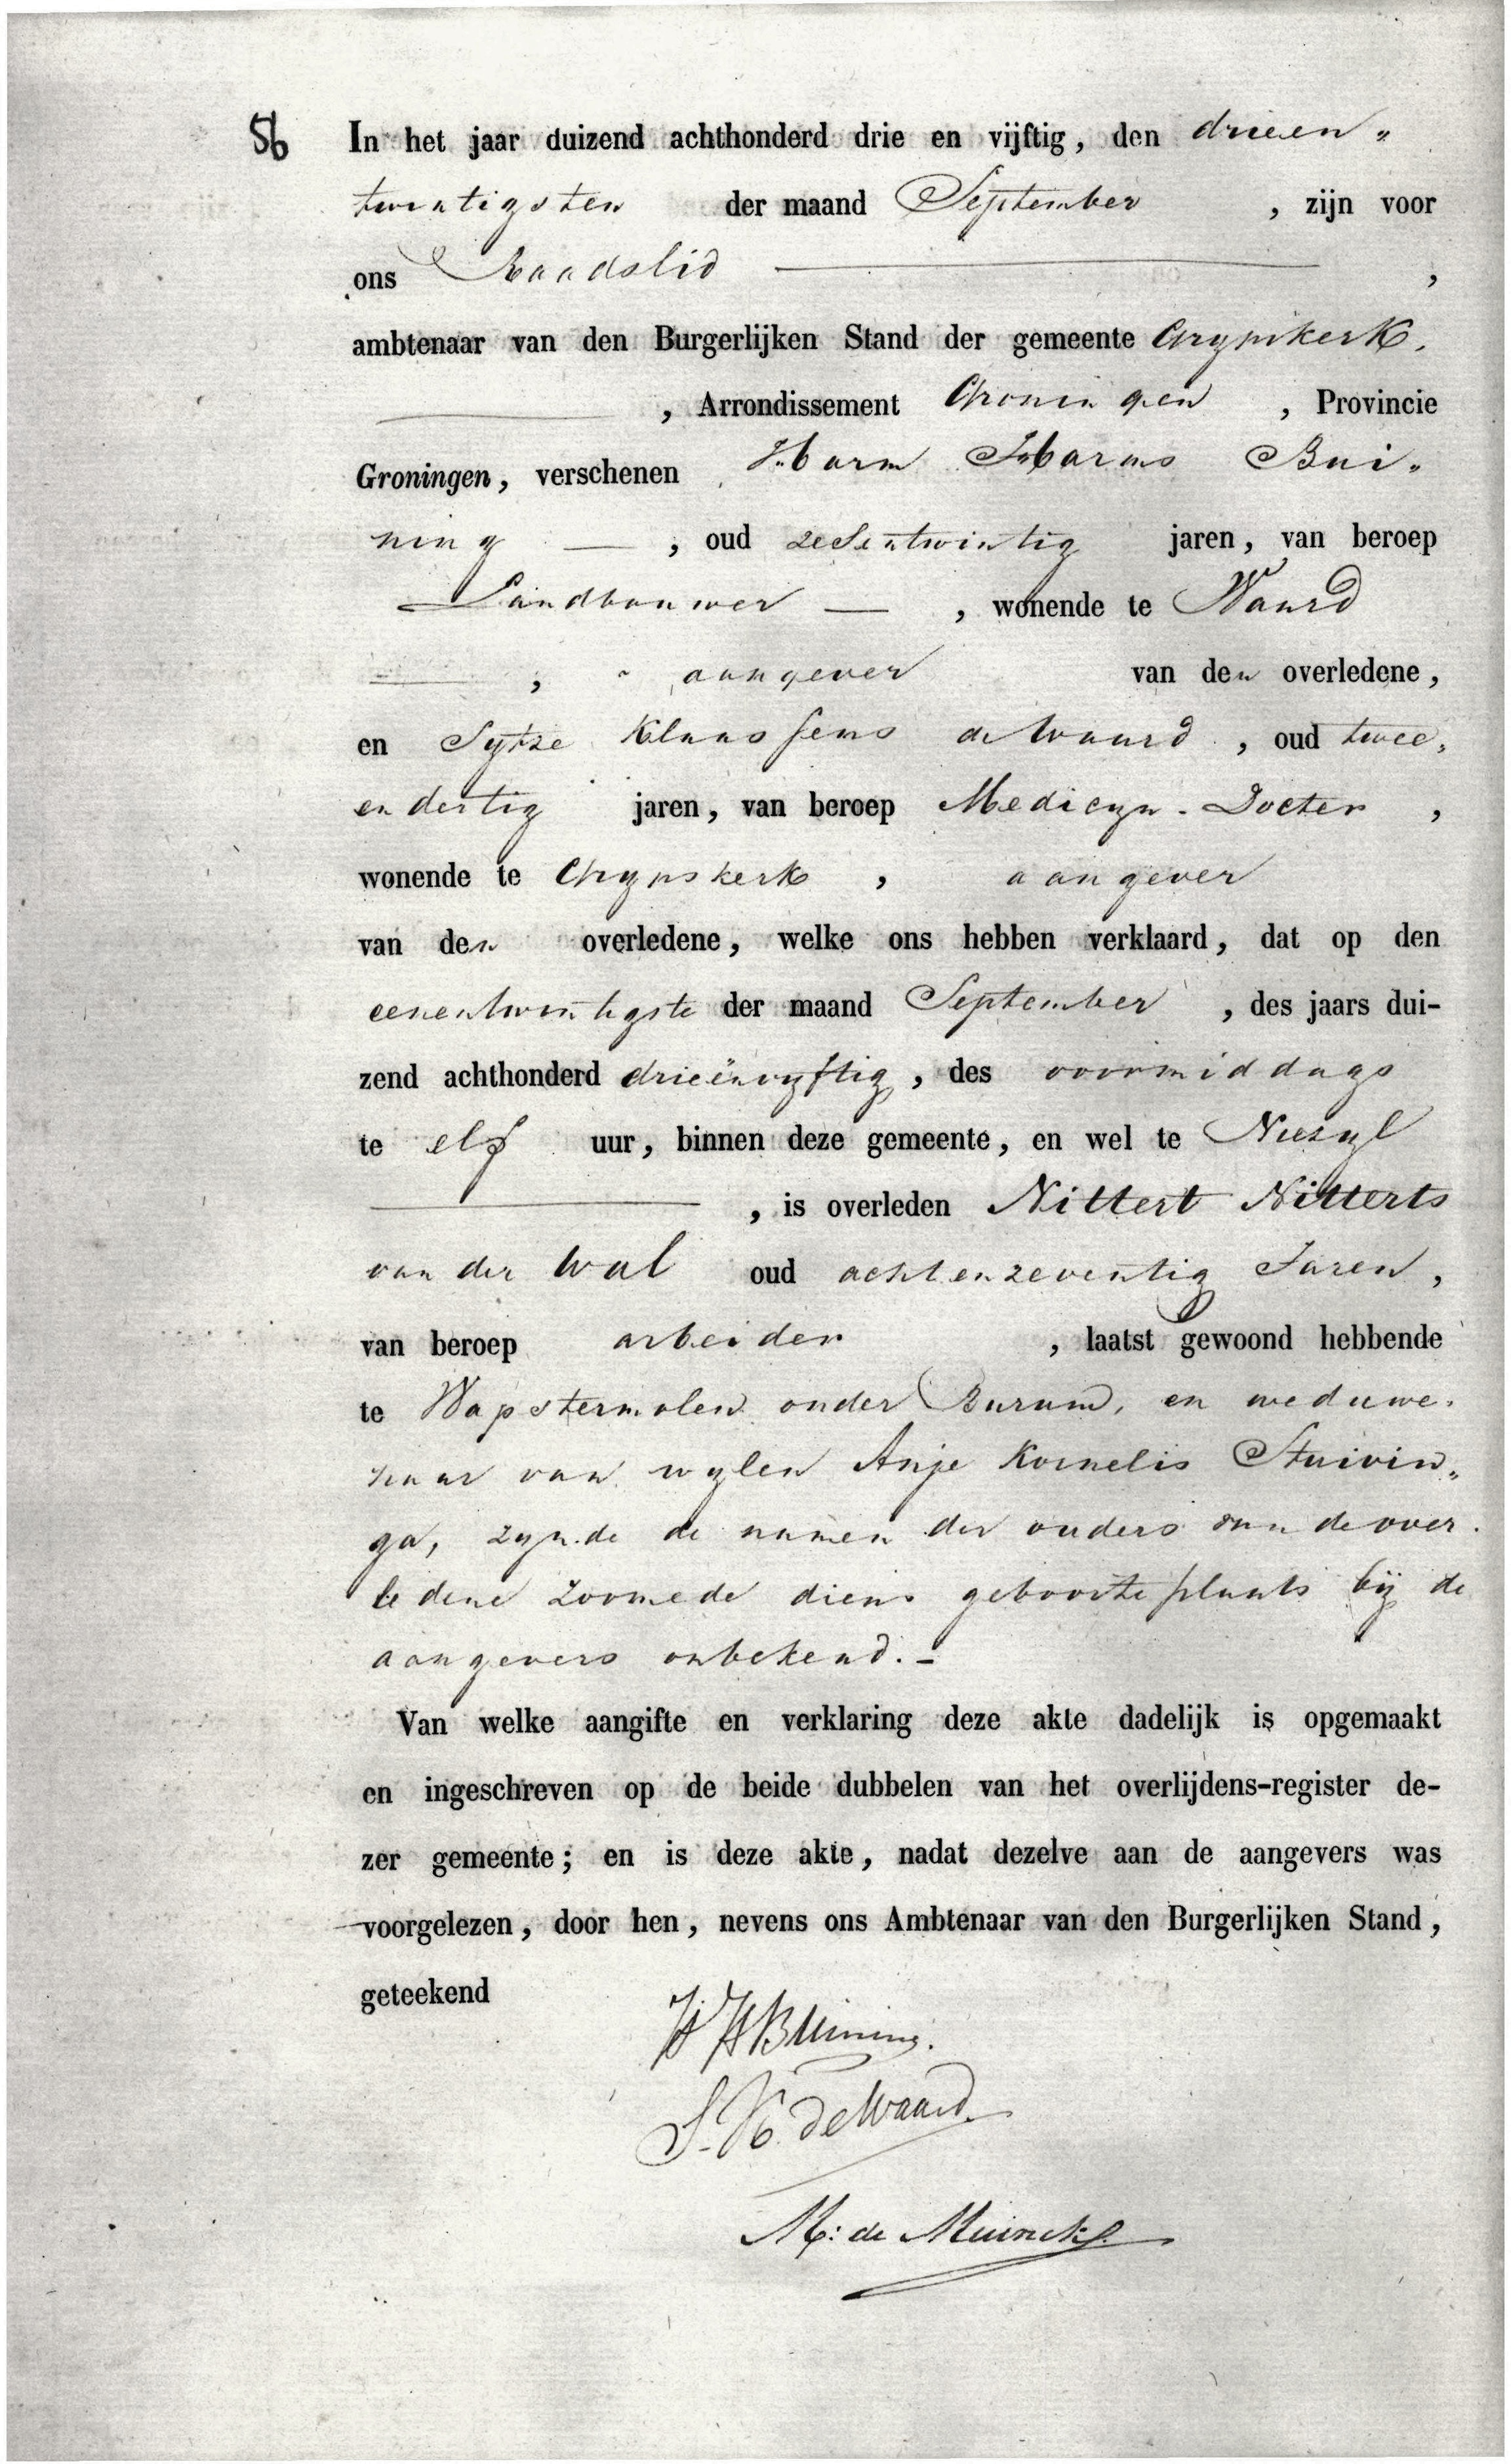 56
In het jaar duizend achthonderd drie en vijftig, den drieen„
twintigsten der maand September, zijn voor
ons Raadslid,
ambtenaar van den Burgerlijken Stand der gemeente Grypskerk,
, Arrondissement Groningen, Provincie
Groningen, verschenen Harm Harms Bui„
ning, oud zesentwintig jaren, van beroep
Landbouwer, wonende te Waard
, aangever van den overledene,
en Sytze Klaassens de Waard, oud twee„
endertig jaren, van beroep Medicyn-Docter,
wonende te Grypskerk, aangever
van den overledene, welke ons hebben verklaard, dat op den
eenentwintigste der maand September, des jaars dui-
zend achthonderd drieënvyftig, des voormiddags
te elf uur, binnen deze gemeente, en wel te Niezyl
, is overleden Nittert Nitterts
van der Wal oud achtenzeventig Jaren,
van beroep arbeider, laatst gewoond hebbende
te Wapstermolen onder Burum, en weduwe-
naar van wylen Anje Kornelis Stuivin„
ga, zynde de namen der ouders van de over-
ledene zoomede diens geboorteplaats bij de
aangevers onbekend.–
Van welke aangifte en verklaring deze akte dadelijk is opgemaakt
en ingeschreven op de beide dubbelen van het overlijdens-register de-
zer gemeente; en is deze akte, nadat dezelve aan de aangevers was
voorgelezen, door hen, nevens ons Ambtenaar van den Burgerlijken Stand,
geteekend
H H Buining.
S. K. de Waard.
M: de Meinck